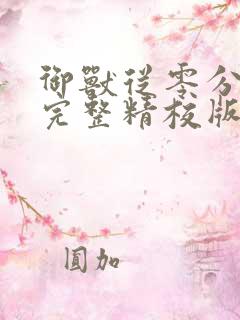 御獸從零分
完整精校版
圓加